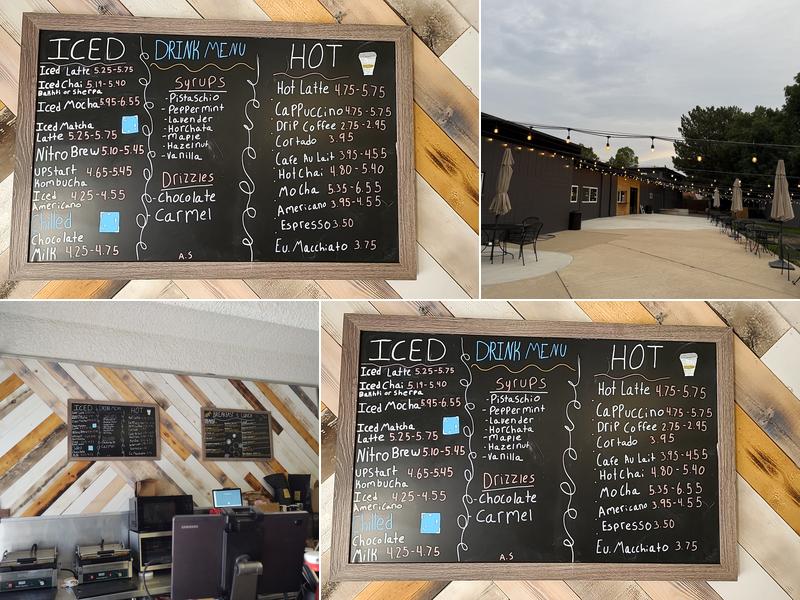 ICED
Iced Latte 5.25-5.75
Iced Chai 5.19-5.40
Bakhti or Sherpa
Iced Mocha 5.95-6.55
Iced Matcha
Latte 5.25-5.75
Nitro Brew 5.10-5.45
upstart 4.65-5.45
Kombucha
Iced 4.25-4.55
Americano
Chilled
Chocolate
Milk 4.25-4.75
DRINK MENU
Syrups
-Pistaschio
-Peppermint
-Lavender
-Horchata
-Maple
-Hazelnut
-Vanilla
Drizzles
-Chocolate
-Carmel
A.S
HOT
Hot Latte 4.75-5.75
Cappuccino 4.75-5.75
Drip Coffee 2.75-2.95
Cortado 3.95
Cafe Au Lait 3.95-4.55
Hot Chai 4.80-5.40
Mocha 5.35-6.55
Americano 3.95-4.55
Espresso 3.50
Eu. Macchiato 3.75
ICED
DRINK MENU
HOT
BREAKFAST & LUNCH
SAMSUNG
ICED
Iced Latte 5.25-5.75
Iced Chai 5.19-5.40
Bakhti or Sherpa
Iced Mocha 5.95-6.55
Iced Matcha
Latte 5.25-5.75
Nitro Brew 5.10-5.45
upstart 4.65-5.45
Kombucha
Iced 4.25-4.55
Americano
Chilled
Chocolate
Milk 4.25-4.75
DRINK MENU
Syrups
-Pistaschio
-Peppermint
-Lavender
-Horchata
-Maple
-Hazelnut
-Vanilla
Drizzles
-Chocolate
-Carmel
A.S
HOT
Hot Latte 4.75-5.75
Cappuccino 4.75-5.75
Drip Coffee 2.75-2.95
Cortado 3.95
Cafe Au Lait 3.95-4.55
Hot Chai 4.80-5.40
Mocha 5.35-6.55
Americano 3.95-4.55
Espresso 3.50
Eu. Macchiato 3.75